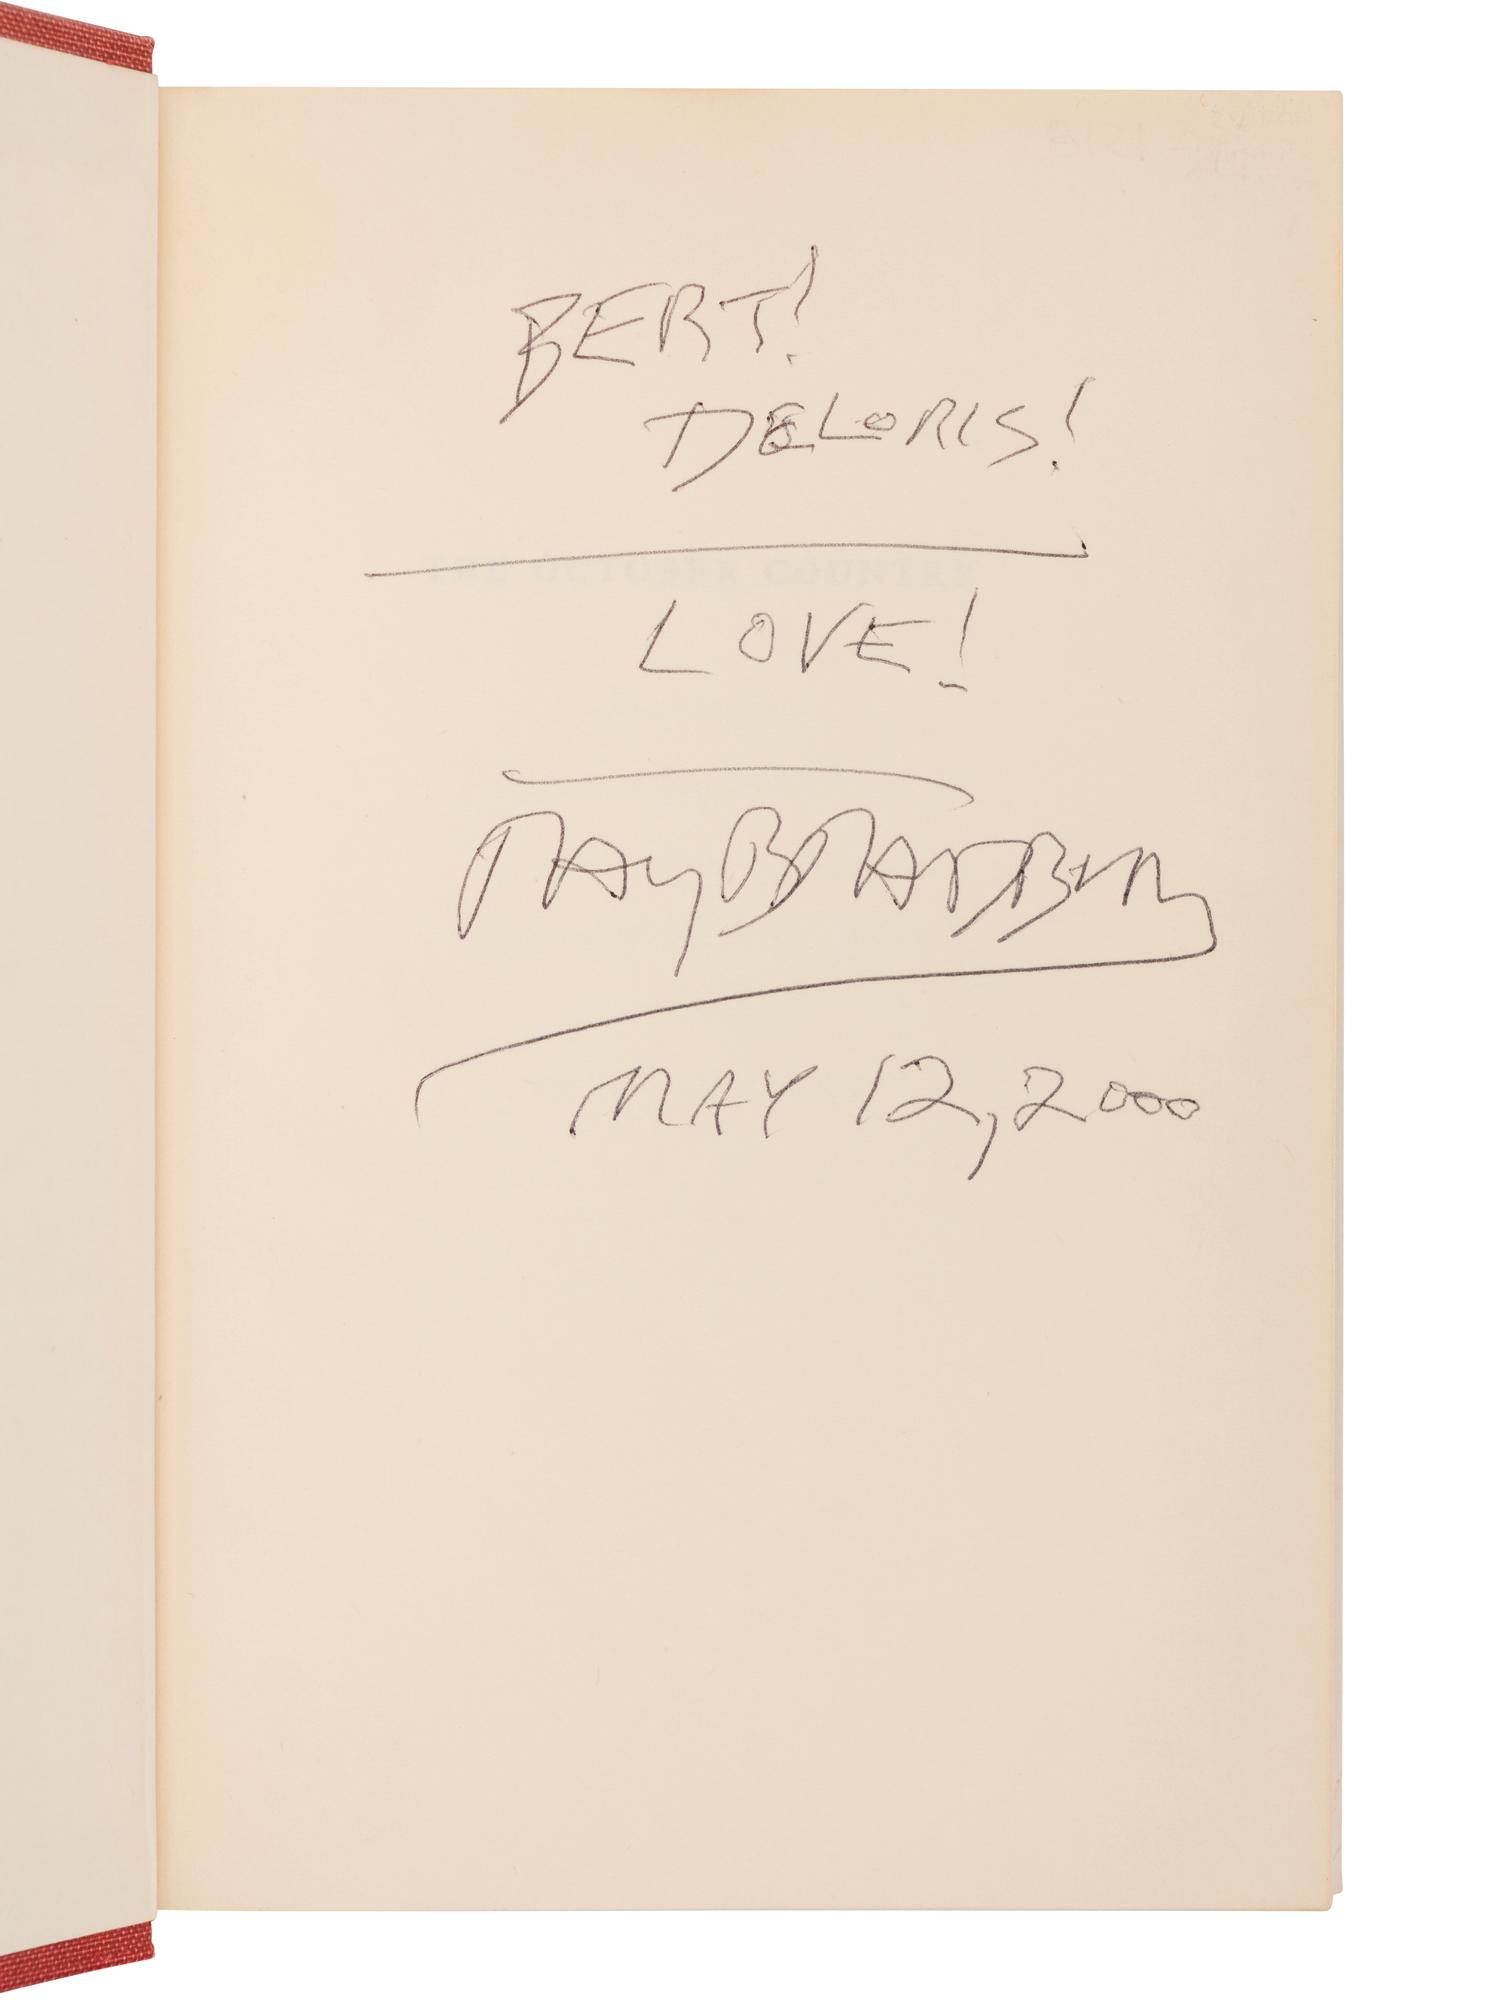 BERT!
DELORIS!
THE OCTOBER COUNTRY
LOVE!
RAY BRADBURY
MAY 12, 2000